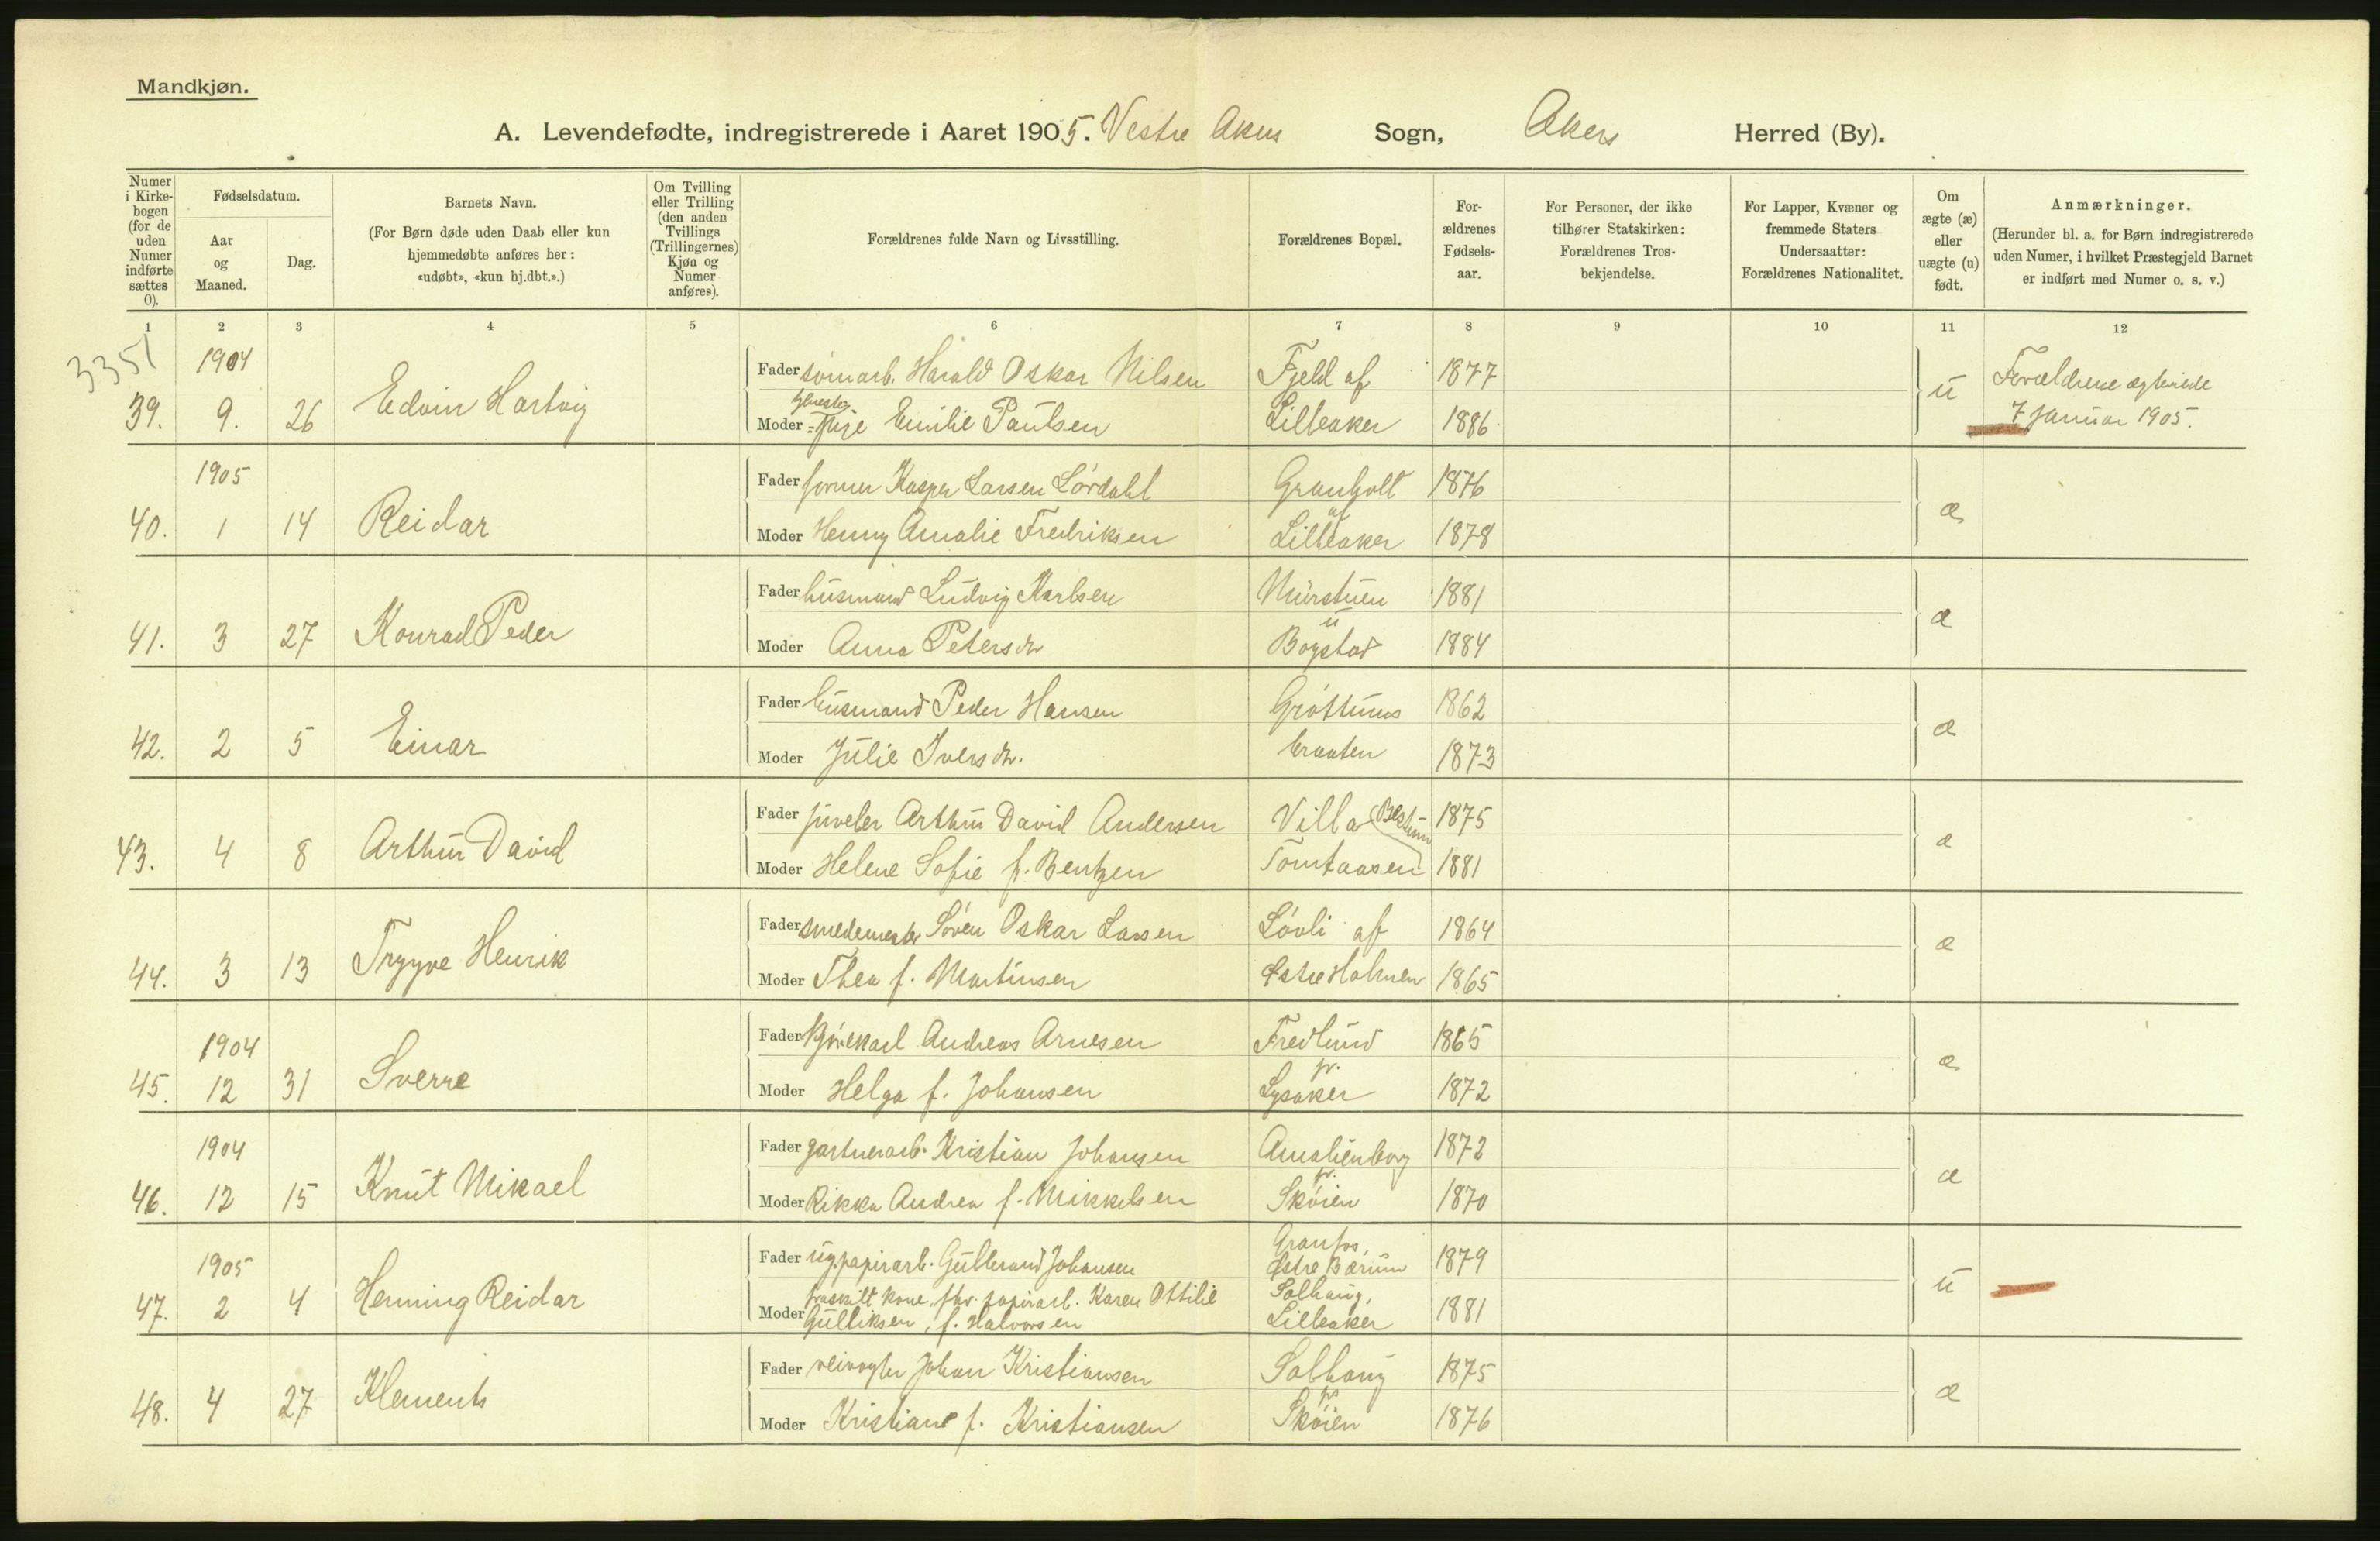 Mandkjøn.
A. Levendefødte, indregistrerede i Aaret 1905. Vestre Akers Sogn, Akers Herred (By).
Numer i Kirke-bogen (for de uden Numer indførte sættes 0).
Fødselsdatum.
Aar og Maaned.
Dag.
Barnets Navn.
(For Børn døde uden Daab eller kun hjemmedøbte anføres her: «udøbt», «kun hj.dbt.».)
Om Tvilling eller Trilling (den anden Tvillings (Trillingernes) Kjøn og Numer anføres).
Forældrenes fulde Navn og Livsstilling.
Forældrenes Bopæl.
For-ældrenes Fødsels-aar.
For Personer, der ikke tilhører Statskirken: Forældrenes Tros-bekjendelse.
For Lapper, Kvæner og fremmede Staters Undersaatter: Forældrenes Nationalitet.
Om ægte (æ) eller uægte (u) født.
Anmærkninger.
(Herunder bl. a. for Børn indregistrerede uden Numer, i hvilket Præstegjeld Barnet er indført med Numer o. s. v.)
1 2 3 4 5 6 7 8 9 10 11 12
3351
1904
Fader sømarb. Harald Oskar Nilsen Fjeld af 1877
39. 9. 26 Edvin Hartvig u Forældrene ægteviede
Moder Emilie Paulsen Lilleaker 1886 7 Januar 1905.
1905
Fader former Kasper Larsen Lørdahl Granholt 1876
40. 1 14 Reidar æ
af
Moder Henny Amalie Fredriksen Lilleaker 1878
Fader husmand Ludvig Karlsen Murstuen 1881
41. 3 27 Konrad Peder u æ
Moder Anna Petersdr. Bogstad 1884
Fader husmand Peder Hansen Grøttums 1862
42. 2 5 Einar æ
Moder Julie Iversdr. braaten 1873
Fader juveler Arthur David Andersen Villa Bestum 1875
43. 4 8 Arthur David æ
Moder Helene Sofie f. Bentzen Tomtaasen 1881
Fader smedemester Søren Oskar Larsen Løvli af 1864
44. 3 13 Trygve Henrik æ
Moder Thea f. Martinsen Østre Holmen 1865
1904
Fader kjørekarl Andreas Arnesen Fredlund 1865
45. 12 31 Sverre pr. æ
Moder Helga f. Johansen Lysaker 1872
1904
Fader gartnerarb. Kristian Johansen Amalienborg 1872
46. 12 15 Knut Mikael pr. æ
Moder Rikka Andrea f. Mikkelsen Skøien 1870
1905
Granfos,
Fader ug. papirarb. Gulbrand Johansen Østre Bærum 1879
47. 2 4 Henning Reidar u
fraskilt kone, fhv. papirarb. Karen Ottilie Solhaug,
Moder Gulliksen, f. Halvorsen Lilleaker 1881
Fader veivogter Johan Kristiansen Solhaug 1875
48. 4 27 Klements pr æ
Moder Kristiane f. Kristiansen Skøien 1876